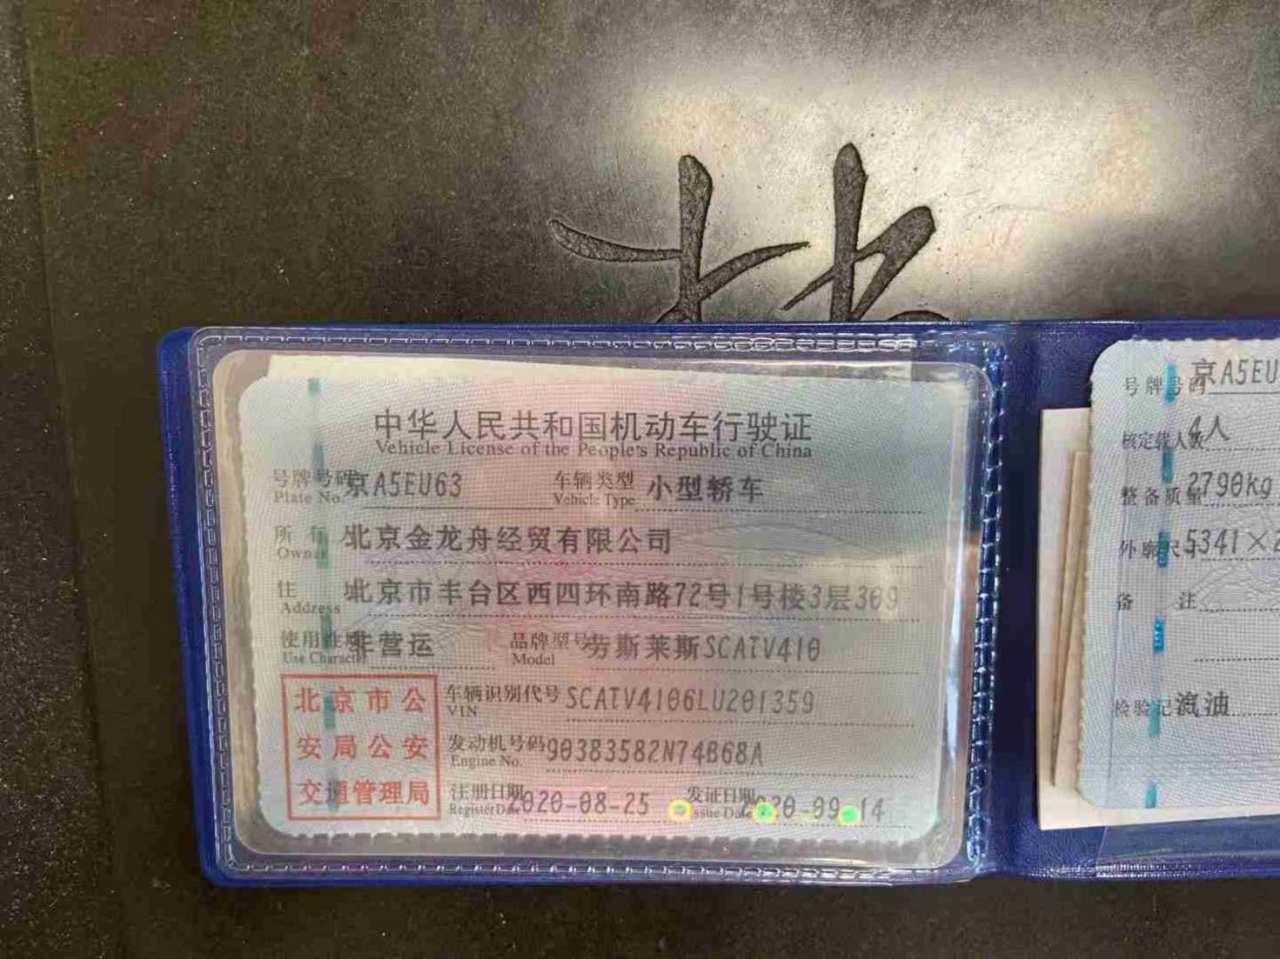 中华人民共和国机动车行驶证
Vehicle License of the People's Republic of China
号牌号码 京A5EU63 车辆类型 小型轿车
Plate No. Vehicle Type
所有人 北京金龙舟经贸有限公司
Owner
住 北京市丰台区西四环南路72号1号楼3层309
Address
使用性质 非营运 品牌型号 劳斯莱斯SCATV410
Use Character Model
北京市公
安局公安
交通管理局
车辆识别代号 SCATV4106LU201359
VIN
发动机号码 90383582N74B68A
Engine No.
注册日期 2020-08-25 发证日期 2020-09-14
Register Date Issue Date
号牌号码 京A5EU
核定载人数 4人
整备质量 2790kg
外廓尺 5341×
备注
检验记 汽油